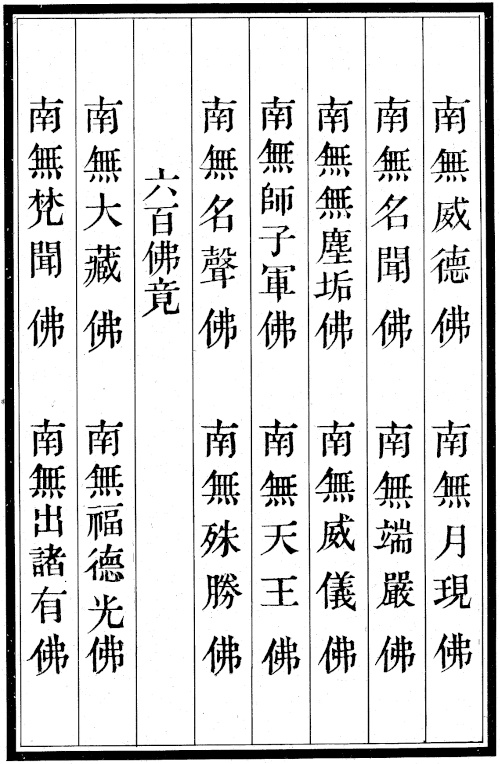 南無威德佛　南無月現佛
南無名聞佛　南無端嚴佛
南無無塵垢佛　南無威儀佛
南無師子軍佛　南無天王佛
南無名聲佛　南無殊勝佛
六百佛竟
南無大藏佛　南無福德光佛
南無梵聞佛　南無出諸有佛